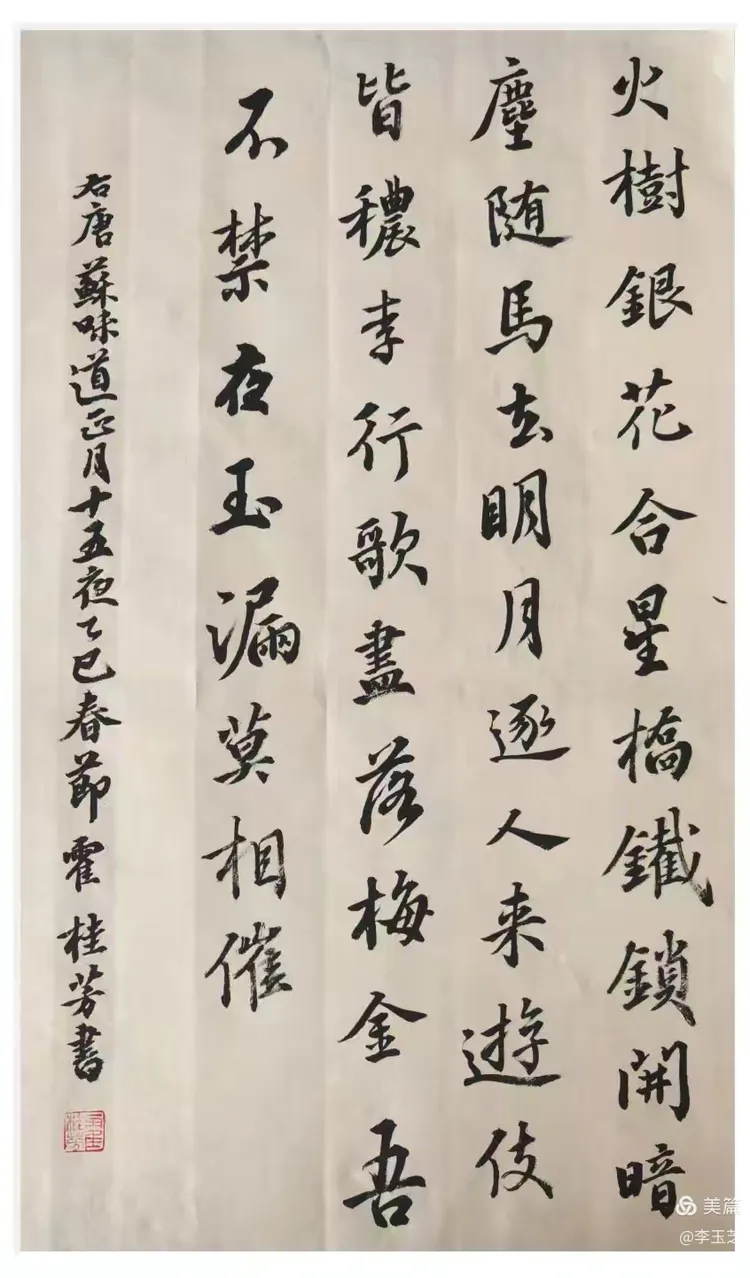 火樹銀花合星橋鐵鎖開暗
塵隨馬去明月逐人来遊伎
皆穠李行歌盡落梅金吾
不禁夜玉漏莫相催
右唐蘇味道正月十五夜乙巳春節霍桂芳書
美篇
@李玉芝